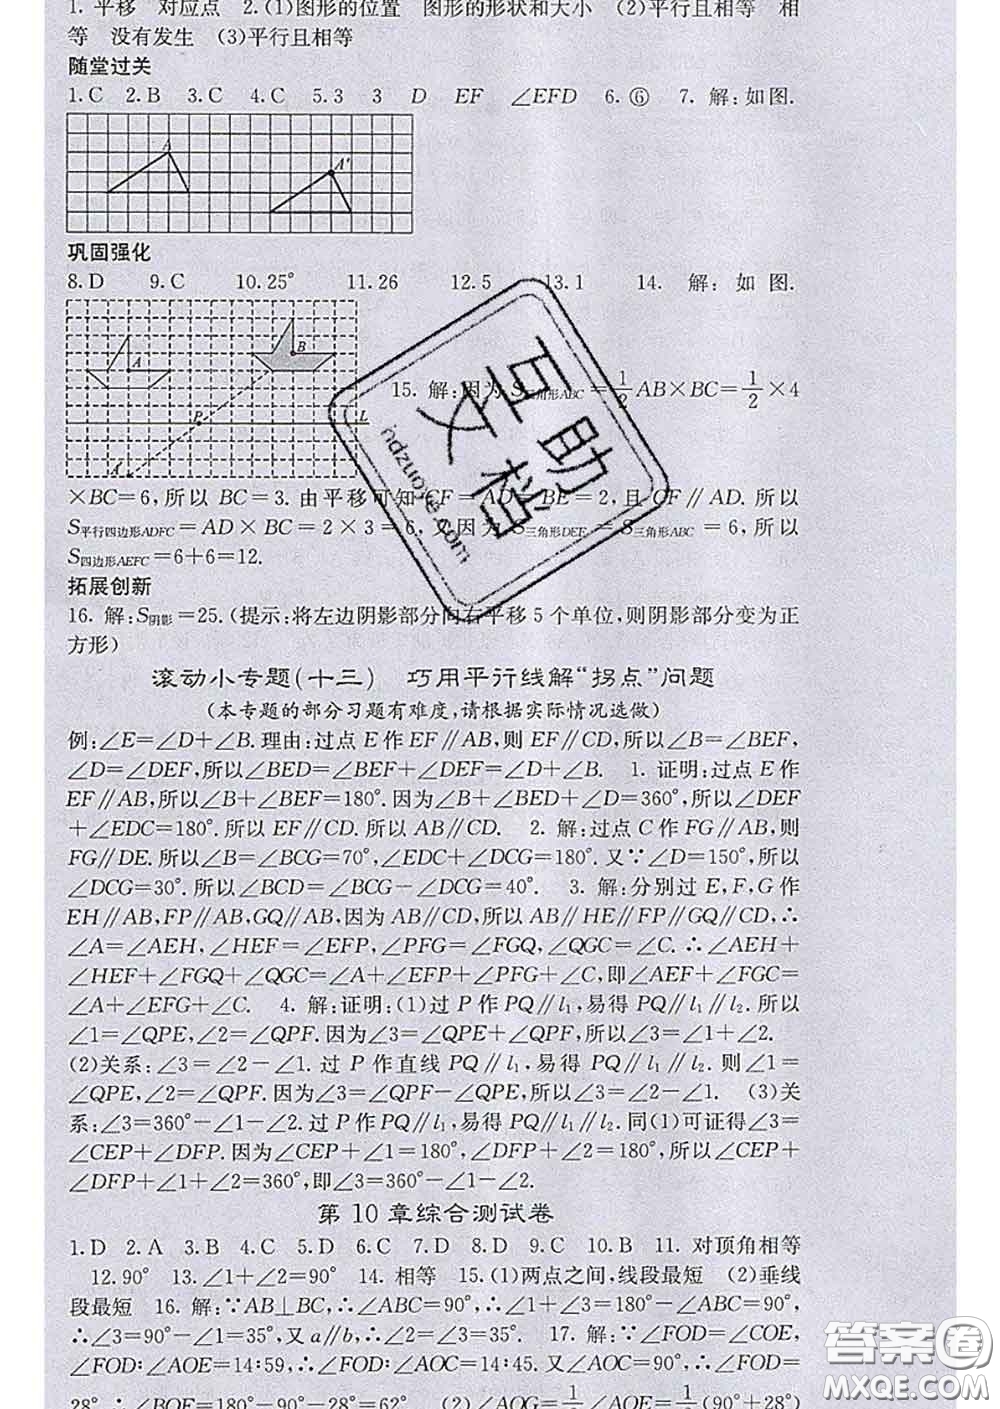 1. 平移 对应点 2.(1)图形的位置 图形的形状和大小 (2)平行且相等 相
等 没有发生 (3)平行且相等
随堂过关
1.C 2.B 3.C 4.C 5.3 3 D EF ∠EFD 6.⑥ 7. 解:如图.
A A′
巩固强化
8.D 9.C 10.25° 11.26 12.5 13.1 14. 解:如图.
A B
P L
15. 解:因为S三角形ABC=1/2AB×BC=1/2×4
×BC=6,所以 BC=3. 由平移可知 CF=AD=BE=2,且 CF∥AD. 所以
S平行四边形ADFC=AD×BC=2×3=6,又因为 S三角形DEF=S三角形ABC=6,所以
S四边形AEFC=6+6=12.
拓展创新
16. 解:S阴影=25.(提示:将左边阴影部分向右平移 5 个单位,则阴影部分变为正
方形)
滚动小专题(十三) 巧用平行线解“拐点”问题
(本专题的部分习题有难度,请根据实际情况选做)
例:∠E=∠D+∠B.理由:过点 E 作 EF∥AB,则 EF∥CD,所以∠B=∠BEF,
∠D=∠DEF,所以∠BED=∠BEF+∠DEF=∠D+∠B. 1. 证明:过点 E 作
EF∥AB,所以∠B+∠BEF=180°.因为∠B+∠BED+∠D=360°,所以∠DEF
+∠EDC=180°.所以 EF∥CD.所以 AB∥CD. 2. 解:过点 C 作 FG∥AB,则
FG∥DE.所以∠B=∠BCG=70°,∠EDC+∠DCG=180°.又∵∠D=150°,所以
∠DCG=30°.所以∠BCD=∠BCG-∠DCG=40°. 3. 解:分别过 E,F,G 作
EH∥AB,FP∥AB,GQ∥AB,因为 AB∥CD,所以 AB∥HE∥FP∥GQ∥CD,∴
∠A=∠AEH,∠HEF=∠EFP,∠PFG=∠FGQ,∠QGC=∠C.∴∠AEH+
∠HEF+∠FGQ+∠QGC=∠A+∠EFP+∠PFG+∠C,即∠AEF+∠FGC=
∠A+∠EFG+∠C. 4. 解:证明:(1)过 P 作 PQ∥l₁,易得 PQ∥l₁∥l₂. 所以
∠1=∠QPE,∠2=∠QPF. 因为∠3=∠QPE+∠QPF,所以∠3=∠1+∠2.
(2)关系:∠3=∠2-∠1. 过 P 作直线 PQ∥l₁,易得 PQ∥l₁∥l₂. 则∠1=
∠QPE,∠2=∠QPF. 因为∠3=∠QPF-∠QPE,所以∠3=∠2-∠1. (3)关
系:∠3=360°-∠1-∠2. 过 P 作 PQ∥l₁,易得 PQ∥l₁∥l₂. 同(1)可证得∠3=
∠CEP+∠DFP. 因为∠CEP+∠1=180°,∠DFP+∠2=180°,所以∠CEP+
∠DFP+∠1+∠2=360°,即∠3=360°-∠1-∠2.
第 10 章综合测试卷
1.D 2.A 3.B 4.C 5.D 6.C 7.D 8.D 9.C 10.B 11. 对顶角相等
12.90° 13.∠1+∠2=90° 14. 相等 15.(1)两点之间,线段最短 (2)垂线
段最短 16. 解:∵AB⊥BC,∴∠ABC=90°,∴∠1+∠3=180°-∠ABC=90°,
∴∠3=90°-∠1=35°,又 a∥b,∴∠2=∠3=35°. 17. 解:∵∠FOD=∠COE,
∠FOD∶∠AOE=14∶59,∴∠FOD∶∠AOC=14∶45. 又∠AOC=90°,∴∠FOD=
28°,∴∠BOF=180°-90°-28°=62°. (2)∠AOG=1/2∠AOE=1/2(90°+28°)
互助文档
hdzuoye.com
答案圈
MXQE.COM